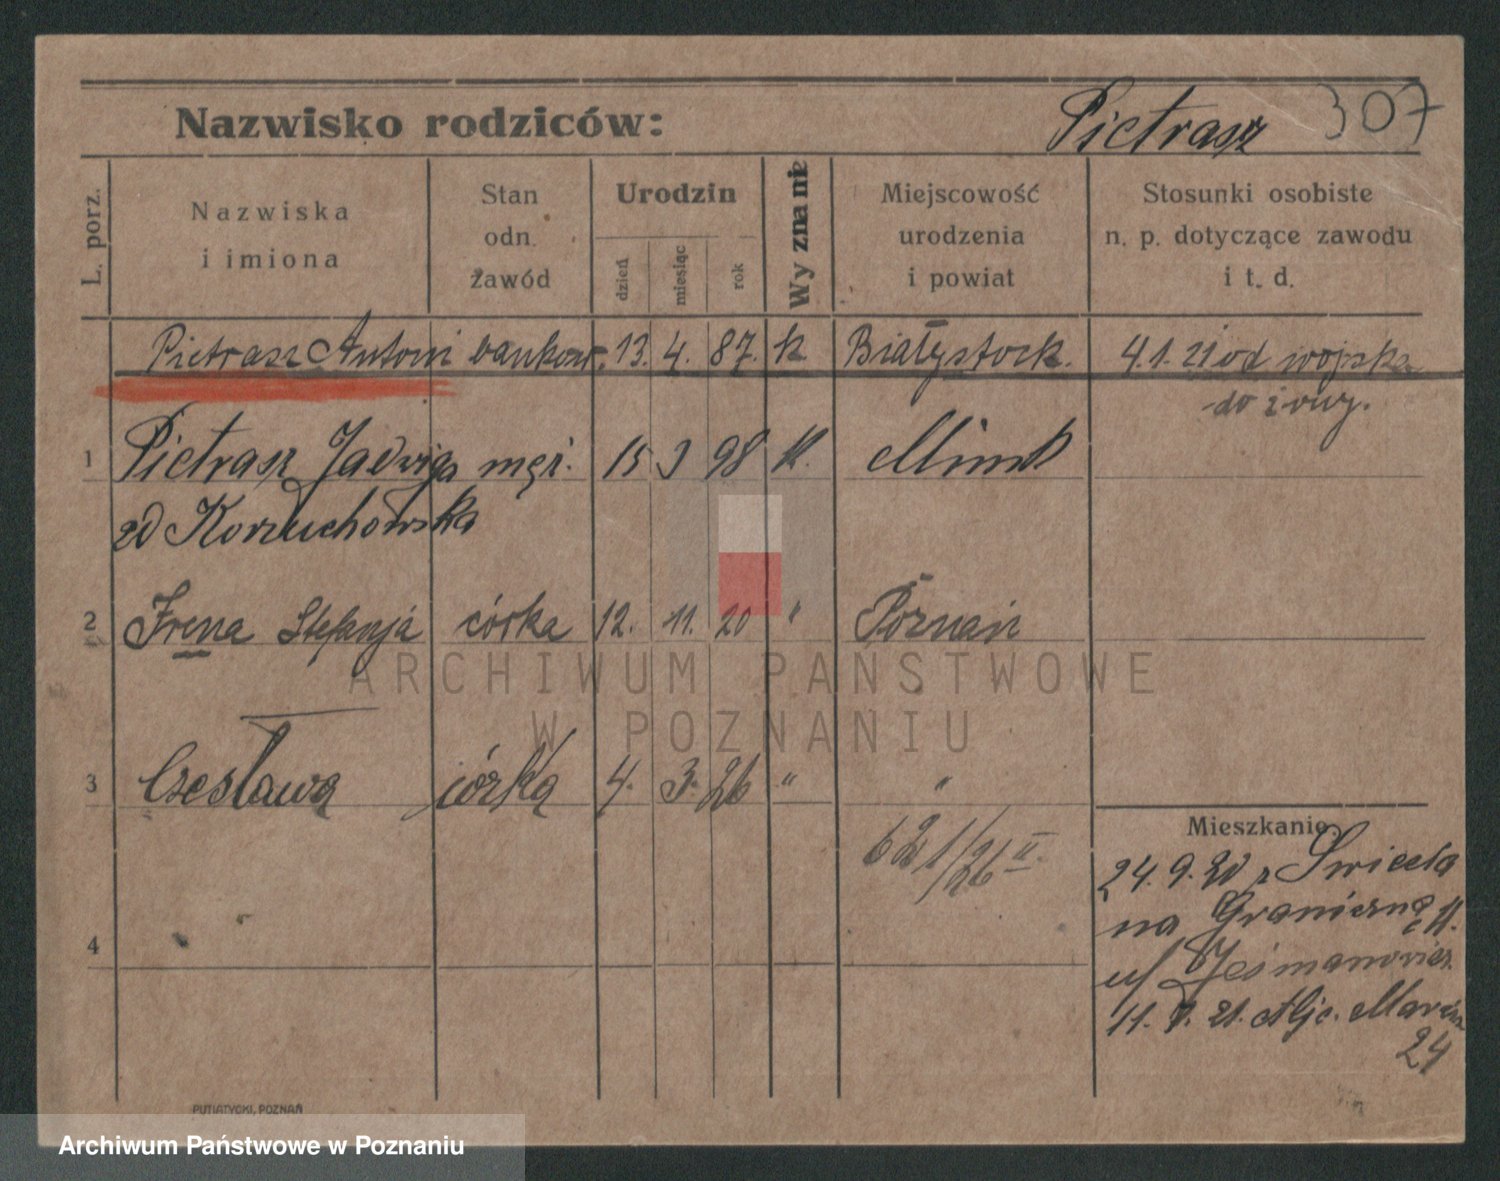 Nazwisko rodziców: Pietrasz 307
L. porz.
Nazwiska i imiona
Stan odn. żawód
Urodzin
dzień
miesiąc
rok
Wyznanie
Miejscowość urodzenia i powiat
Stosunki osobiste n. p. dotyczące zawodu i t. d.
Pietrasz Antoni 13. 4. 87. k Białystock. 4.1.21 od wojska
do żony.
1 Pietrasz Jadwiga 15 3 98 k. Minsk
zd Korzuchowska
2 Irena Stefanja córka 12. 11. 20 " Poznań
3 Czesława córka 4. 3. 26 " "
621/26 II.
Mieszkanie
24.9.20 z
na Graniczną 11.
u/
11. 7. 21. Alje. Marcin
24
4
PUTIATYCKI, POZNAŃ
ARCHIWUM PAŃSTWOWE
W POZNANIU
Archiwum Państwowe w Poznaniu